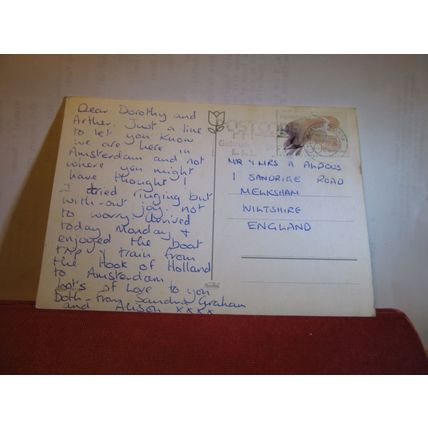 Dear Dorothy and
Arther. Just a line
to let you know
we are here in
Amsterdam and not
where you might
have thought I
I tried ringing but
with-out joy. not
to worry. Arrived
today Monday &
enjoyed the boat
trip & train from
the Hook of Holland
to Amsterdam.
Lots of Love to you
Both - from Sandra Graham
and Alison xxxx
MR & MRS A ALDOUS
1 SANDRIGE ROAD
MELKSHAM
WILTSHIRE
ENGLAND